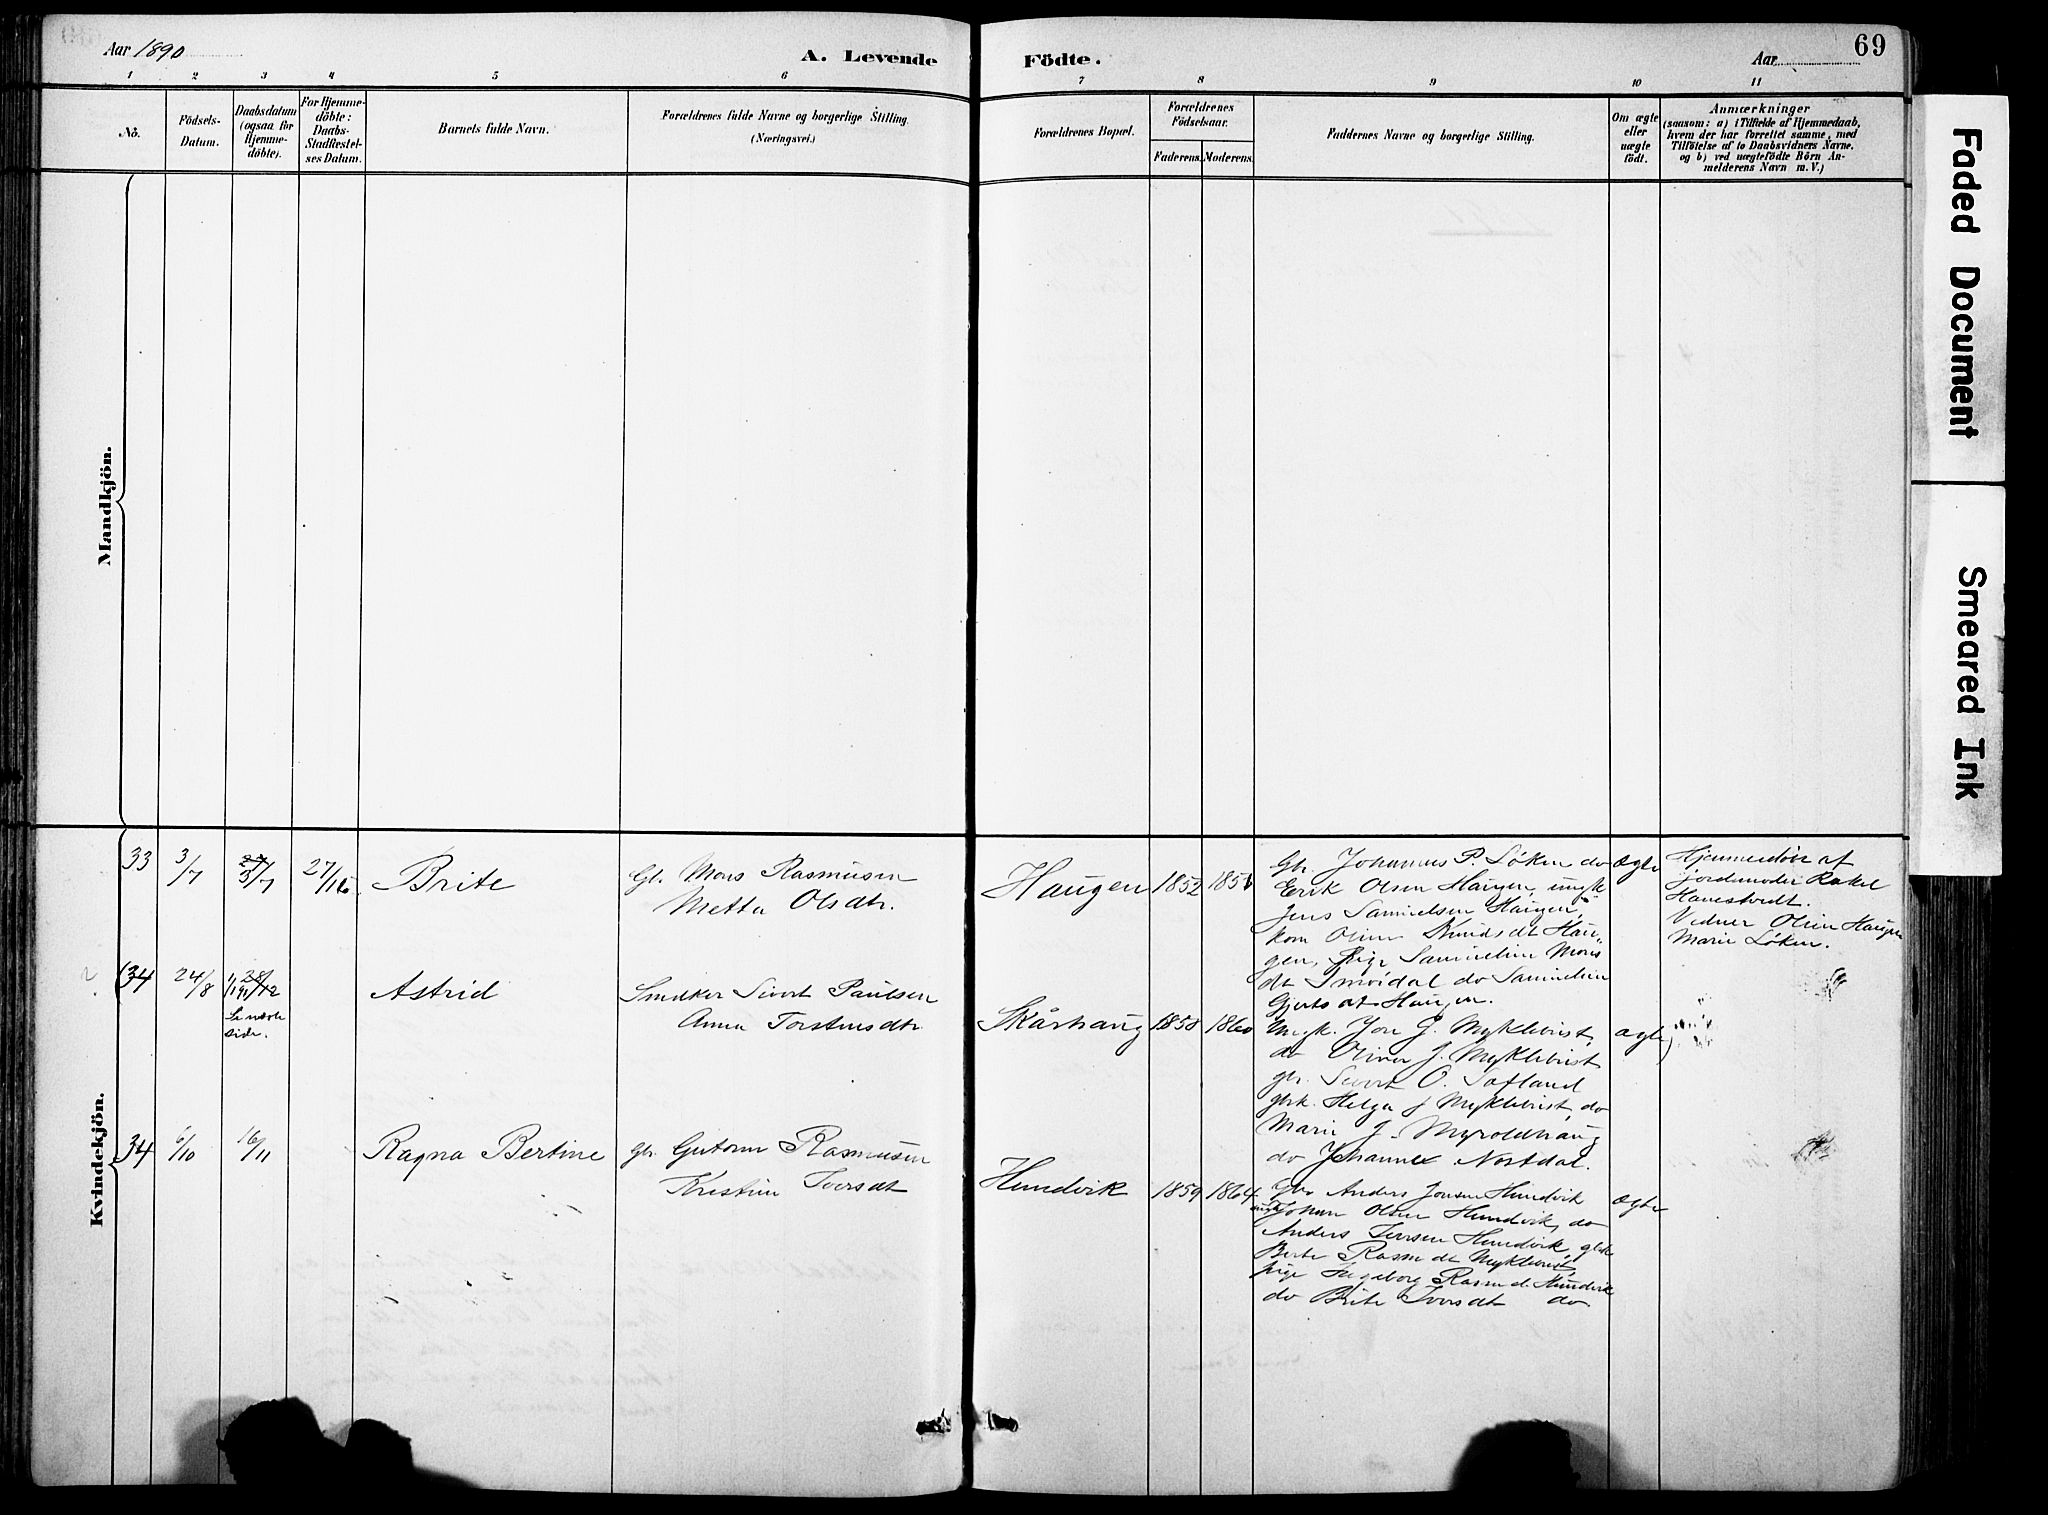 Aar 1890
A. Levende
Födte.
Aar
69
1 2 3 4 5 6 7 8 9 10 11
No.
Födsels-
Datum.
Daabsdatum
(ogsaa for
Hjemme-
döbte).
For Hjemme-
döbte:
Daabs-
Stadfæstel-
ses Datum.
Barnets fulde Navn.
Forældrenes fulde Navne og borgerlige Stilling.
(Næringsvei.)
Forældrenes Bopæl.
Forældrenes
Födselsaar.
Faderens. Moderens.
Faddernes Navne og borgerlige Stilling.
Om ægte
eller
uægte
födt.
Anmærkninger
(saasom: a) i Tilfælde af Hjemmedaab,
hvem der har forrettet samme, med
Tilföielse af to Daabsvidners Navne.
og b) ved uægtefödte Börn An-
melderens Navn m. V.)
Mandkjön.
Kvindekjön.
33
3/7
3/7
27/
Brite
Gb. Mons Rasmusen
Metta Olsdtr.
Haugen
1852
Gb. Johannes P. Löken do
Erik Olsen Haugen, ungk
Jens Samuelsen Haugen,
kom Oline Knudsdt Hau-
gen, Pige Samueline Mons
dt Smördal do Samueline
Gjertsdt Haugen.
Ægte
Hjemmedöbt af
jordemoder Rakel
Havestvedt.
Vidner Oline Haugen
Marie Löken.
(34
24/8
Se næste
side.
Astrid
Snedker Sivert Paulsen
Anna Torstensdtr.
Skårhaug
1858
1860
Ungk. Jon G. Myklebust,
do Oliver J. Myklebust
gb. Sivert O.
gbk. Helga J Myklebust, do
Marie J. Myroldhaug
do Johanne Nordal.
ægte)
34
6/10
16/11
Ragna Bertine
gb. Gutorm Rasmusen
Kristine Iversdt
Hundvik
1859
1864
Gb. Anders Jonsen Hundvik
ungk Johan Olsen Hundvik, do
Anders Jensen Hundvik, gbk
Berte Rasm dt Myklebust,
pige Ingeborg Rasm d. Hundvik
do Brite Iversdt do
Ægte
Faded Document
Smeared Ink